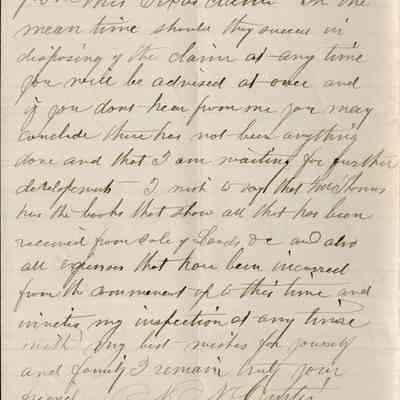 from this Texas claim In the
mean time should they succeed in
disposing of the claim at any time
you will be advised at once and
if you dont hear from me you may
conclude there has not been anything
done and that I am waiting for further
developments I wish to say that
has the books that show all that has been
received from sale of Lands &c and also
all expenses that have been incurred
from the commencement up to this time and
invites my inspection at any time
with my best wishes for yourself
and family I remain truly your
friend N. Curtis